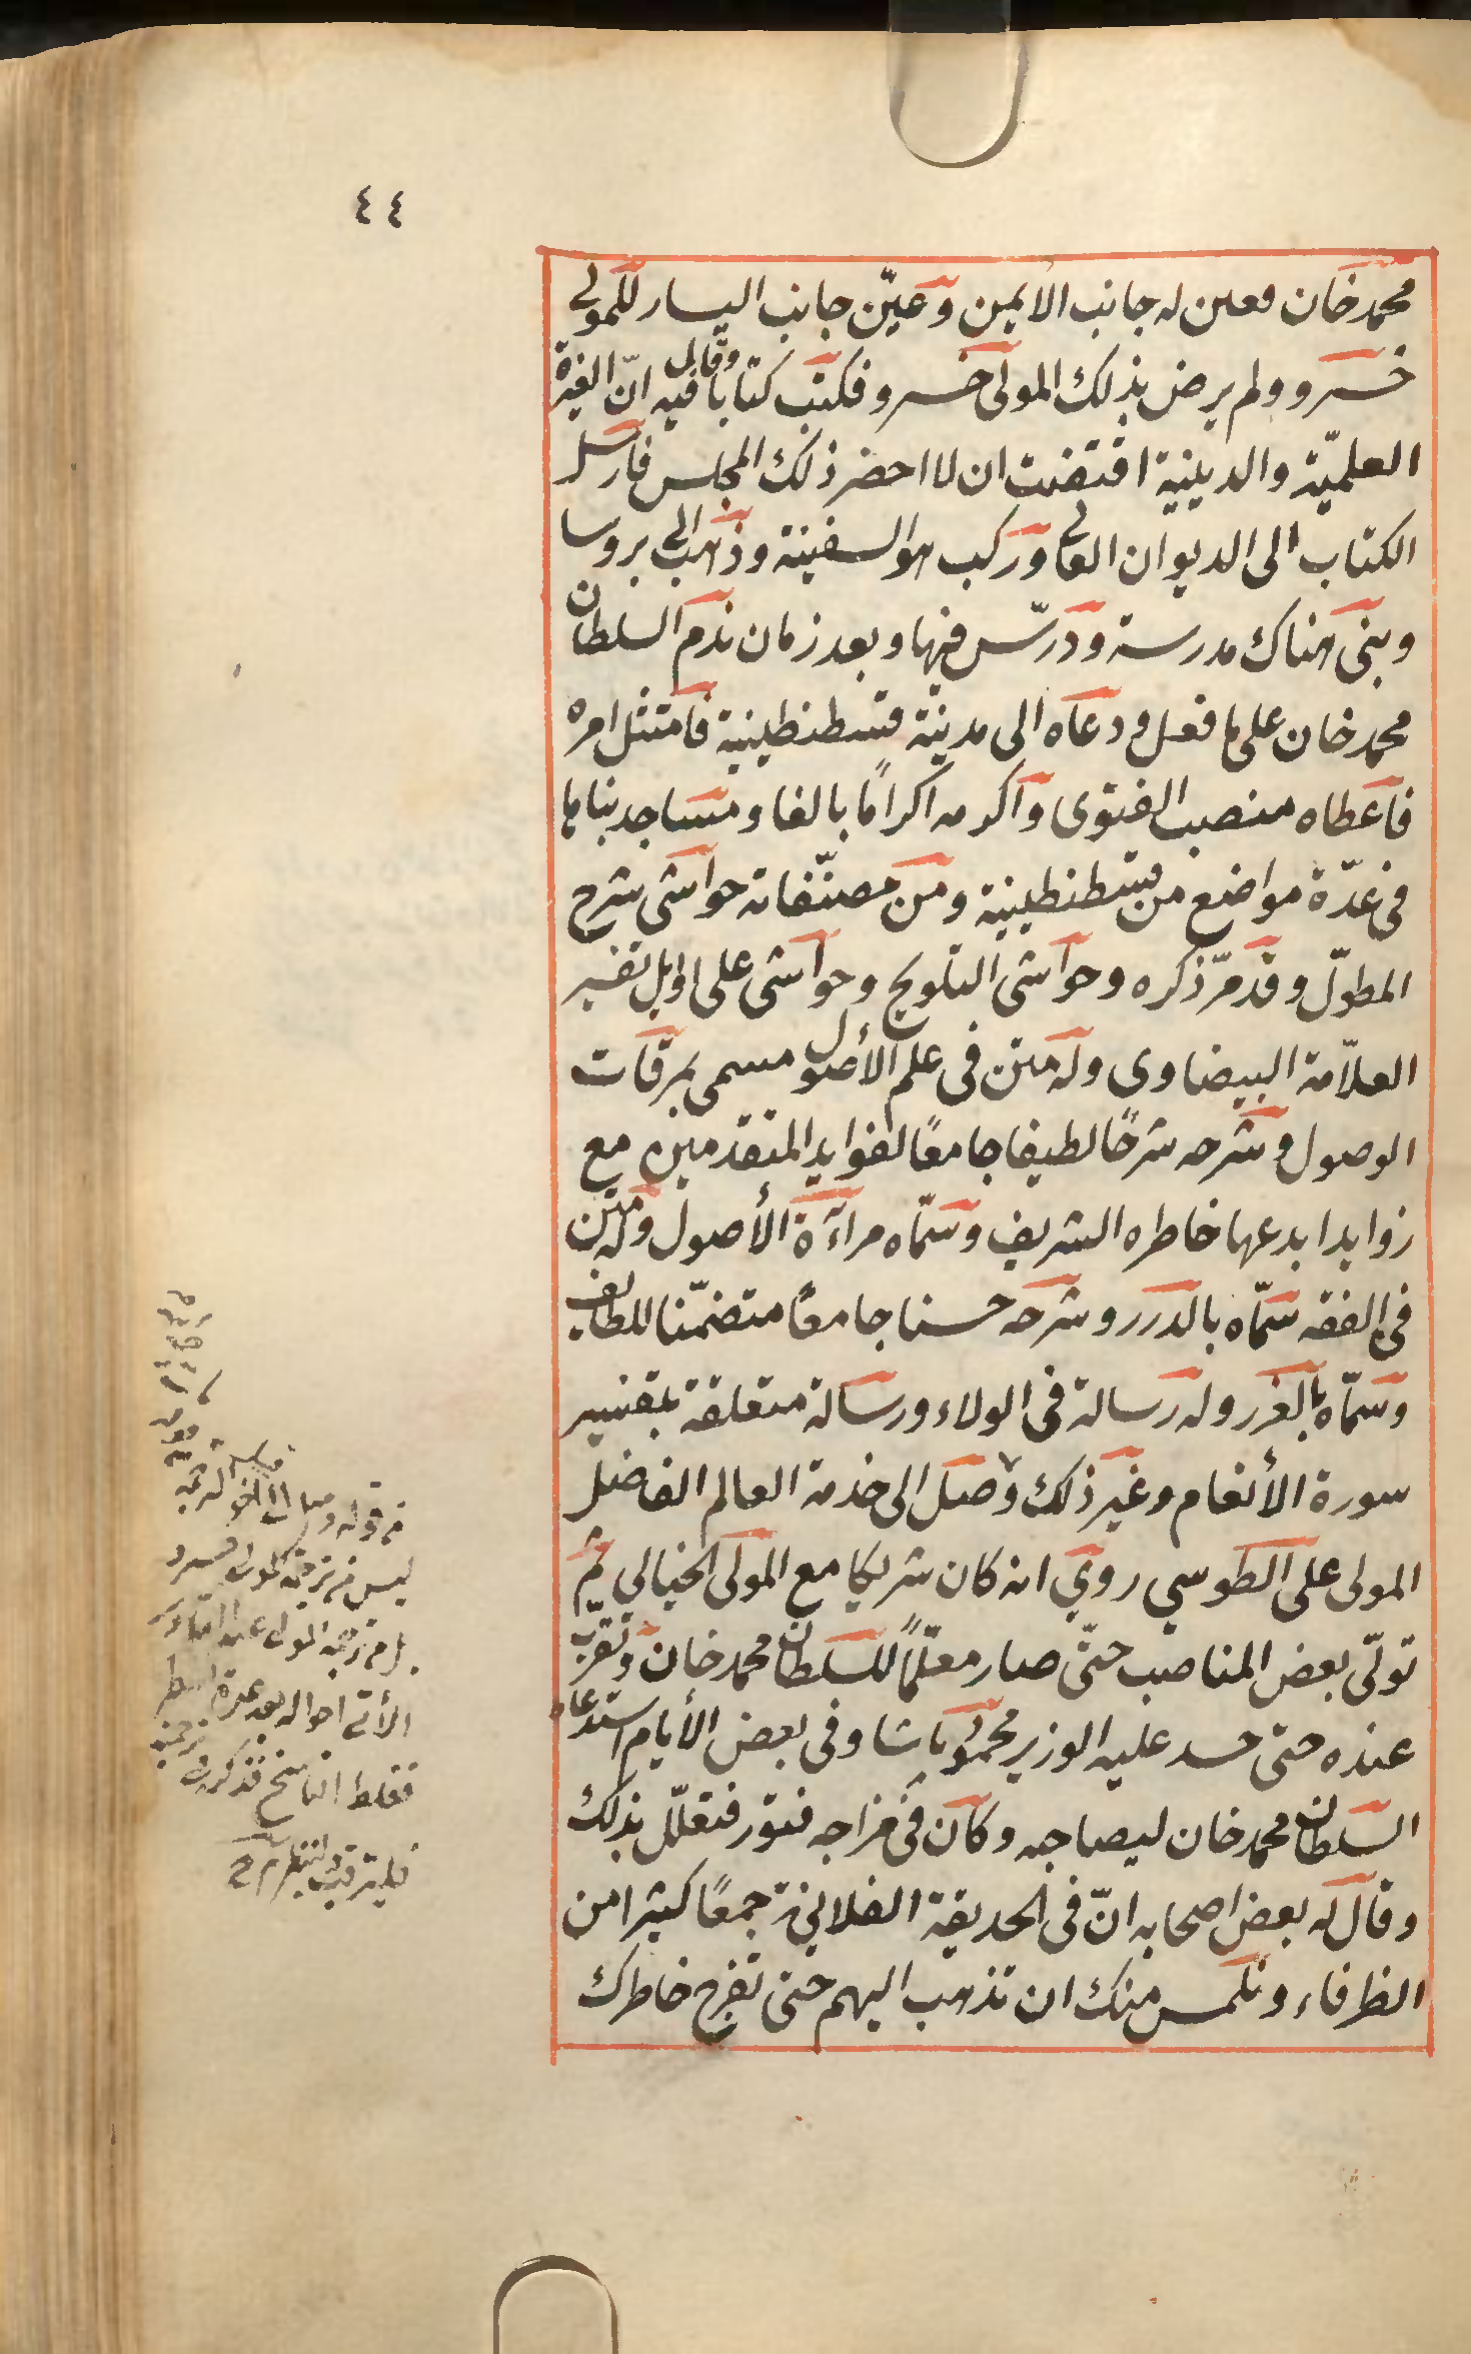 ٤٤
محمد خان فعين له جانب الأيمن وعيّن جانب اليسار للمولى
خسرو ولم يرض بذلك المولى خسرو فكتب كتابا وقال فيه انّ الغيرة
العلميّة والدينية اقتضت ان لا احضر ذلك المجلس فارسل
الكتاب الى الديوان العالى وركب هو السفينة وذهب الى بروسا
وبنى هناك مدرسة ودرّس فيها وبعد زمان ندم السلطان
محمد خان على ما فعل ودعاه الى مدينة قسطنطينية فامتثل امره
فاعطاه منصب الفتوى واكرمه اكرامًا بالغا ومساجد بناها
فى عدّة مواضع من قسطنطينية ومن مصنّفاته حواشى شرح
المطوّل وقد مرّ ذكره وحواشى التلويح وحواشى على اوايل تفسير
العلاّمة البيضاوى وله متن فى علم الأصول مسمى بمرقات
الوصول وشرحه شرحًا لطيفا جامعًا لفوايد المتقدمين مع
زوايد ابدعها خاطره الشريف وسمّاه مرآءة الأصول وله متن
فى الفقه سمّاه بالدرر وشرحه حسنا جامعًا متضمّنا للطايف
وسمّاه بالغرر وله رسالة فى الولاء ورسالة متعلقة بتفسير
سورة الأنعام وغير ذلك وصل الى خدمة العالم الفاضل
المولى على الطوسي روي انه كان شريكا مع المولى الخيالي ثم
تولّى بعض المناصب حتّى صار معلّمًا للسلطان محمد خان وتقرّب
عنده حتى حسد عليه الوزير محمود پاشا وفى بعض الأيام استدعاه
السلطان محمد خان ليصاحبه وكان فى مزاجه فتور فتعلّل بذلك
وقال له بعض اصحابه انّ فى الحديقة الفلانية جمعًا كثيرا من
الظرفاء ونلتمس منك ان تذهب اليهم حتى تفرح خاطرك
من قوله وصل الى
ليس من ترجمة المولى خسرو
بل من ترجمة المولى عبد
الآتى احواله بعد عدة اسطر
فغلط الناسخ